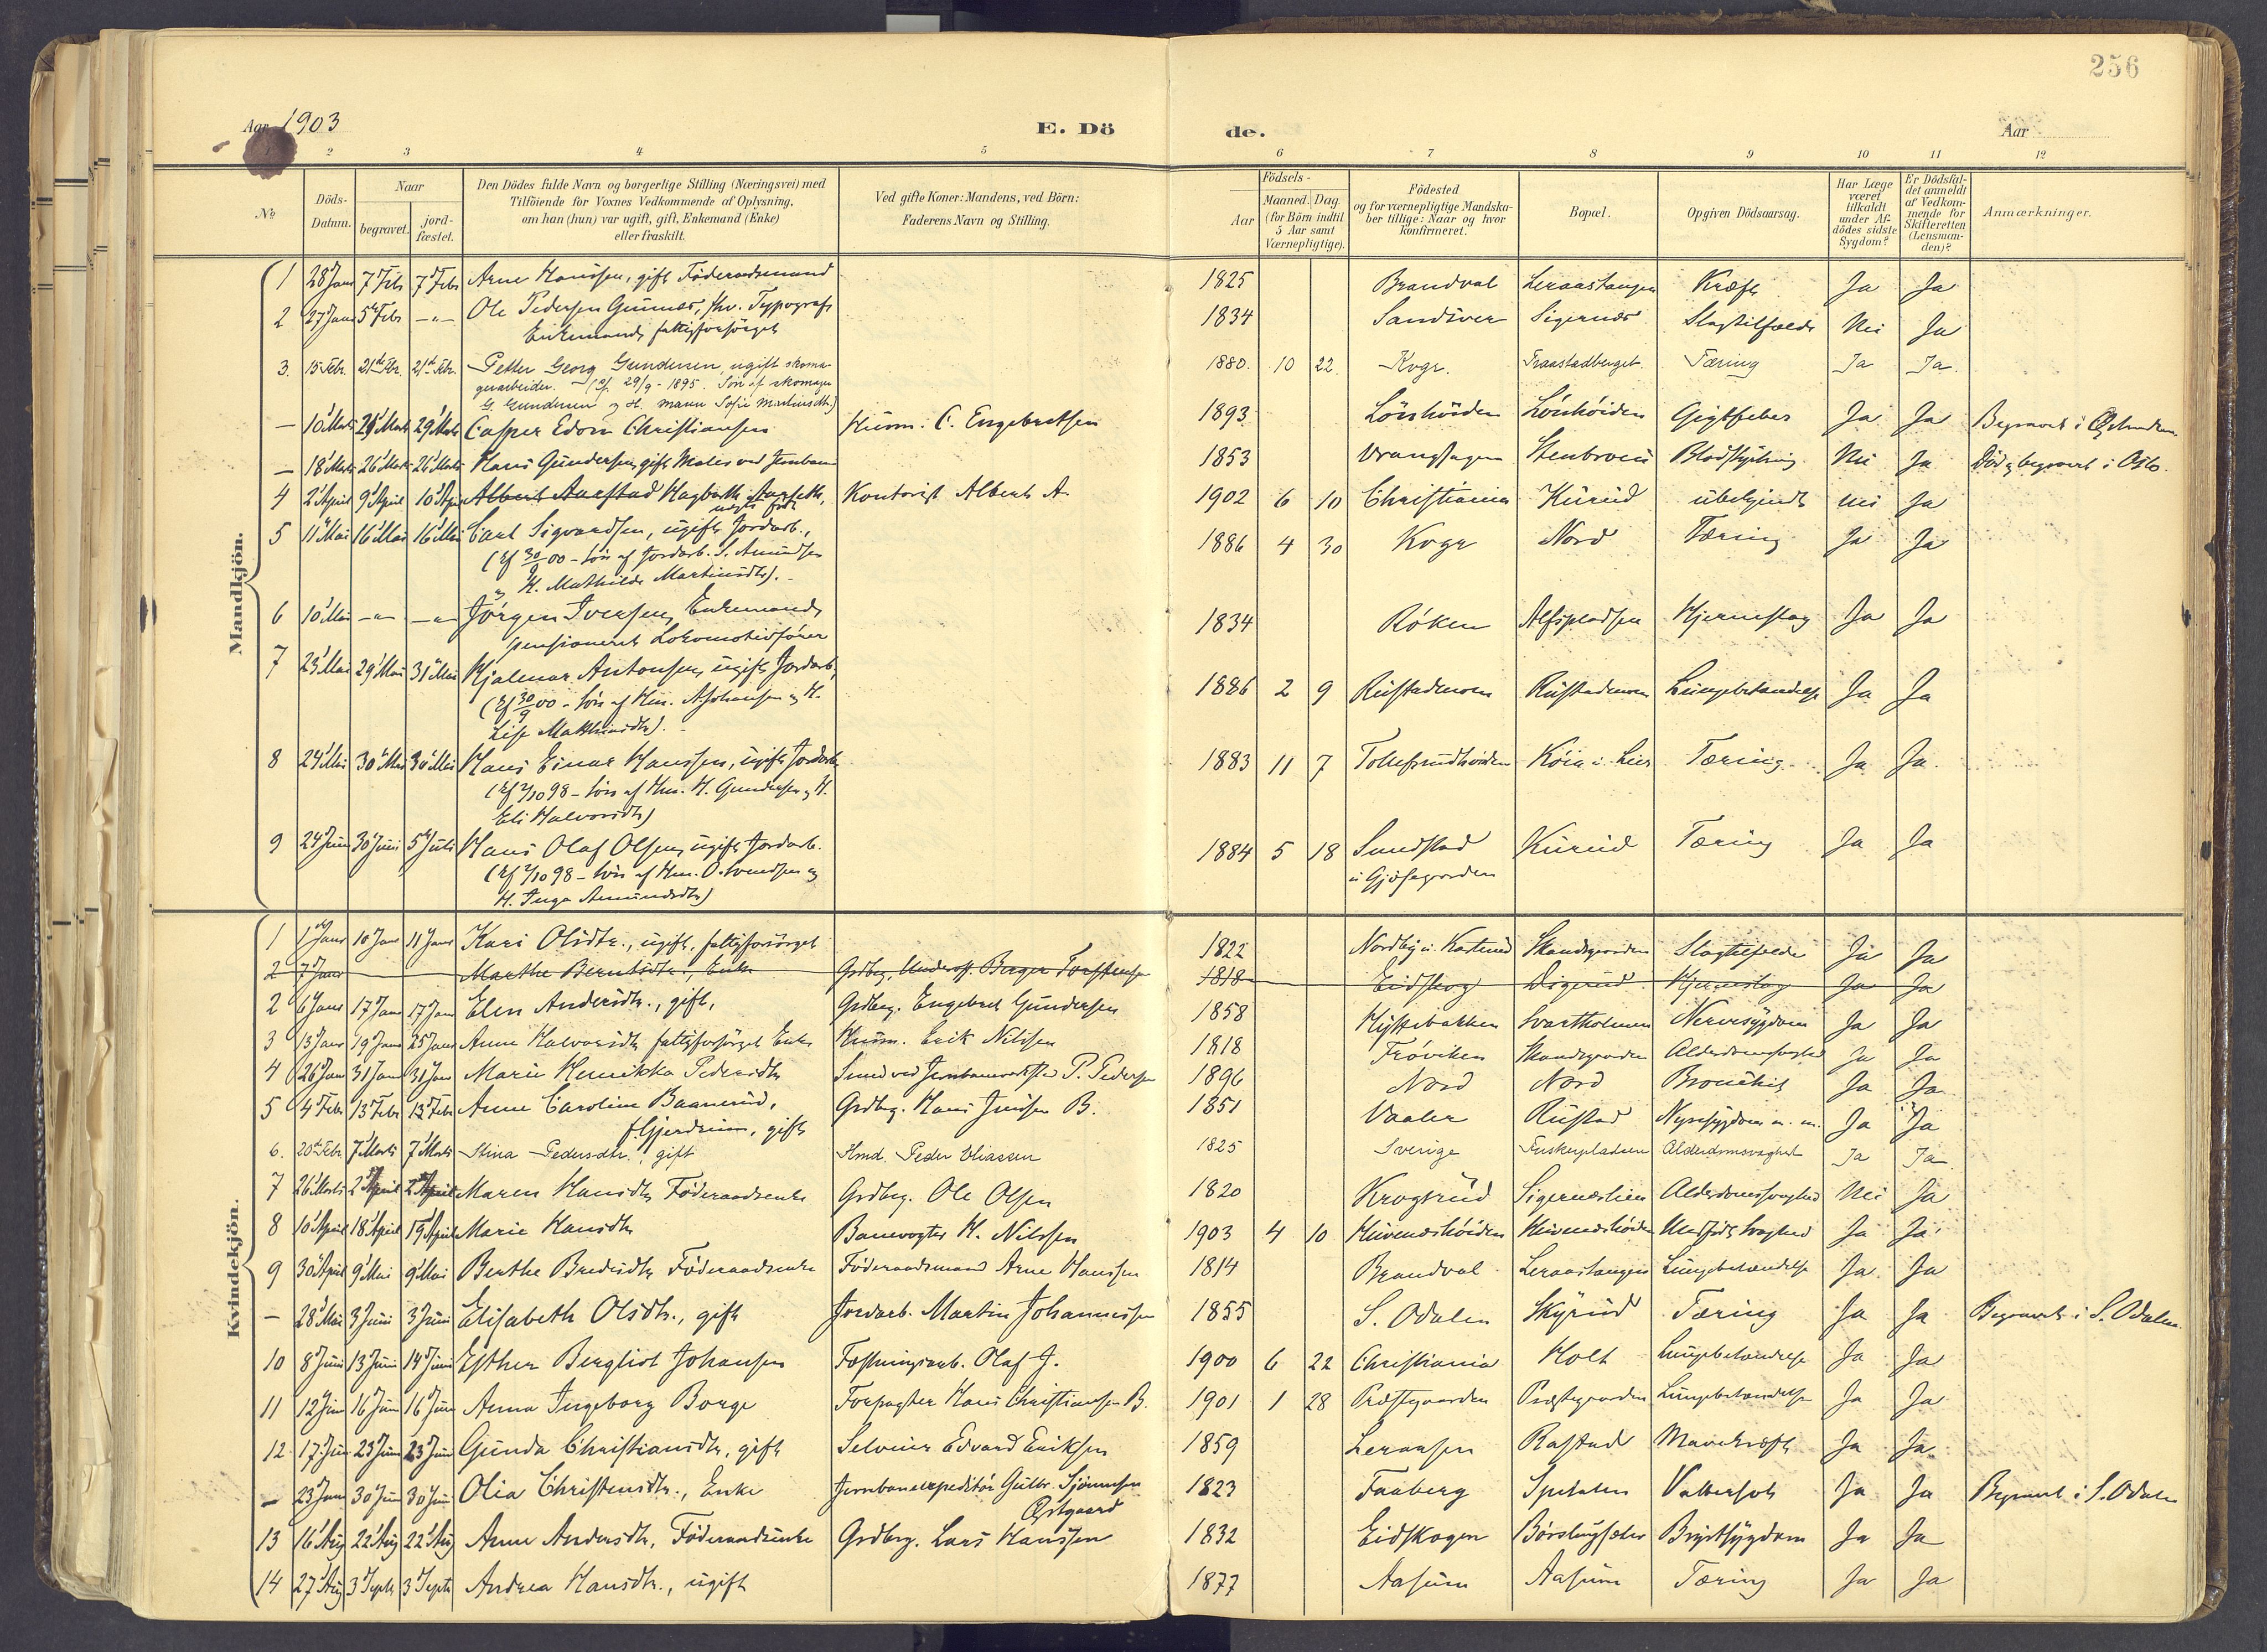 256
Aar 1903
E. Dö
de.
Aar
2 3 4 5 6 7 8 9 10 11 12
№
Döds-Datum.
Naar
begravet.
jord-fæstet.
Den Dödes fulde Navn og borgerlige Stilling (Næringsvei) med
Tilföiende for Voxnes Vedkommende af Oplysning,
om han (hun) var ugift, gift, Enkemand (Enke)
eller fraskilt.
Ved gifte Koner: Mandens, ved Börn:
Faderens Navn og Stilling.
Födsels-
Aar
Maaned. Dag.
(for Börn indtil
5 Aar samt
Værnepligtige).
Födested
og for værnepligtige Mandska-
ber tillige: Naar og hvor
konfirmeret.
Bopæl.
Opgiven Dödsaarsag.
Har Læge
været
tilkaldt
under Af-
dödes sidste
Sygdom?
Er Dödsfal-
det anmeldt
af Vedkom-
mende for
Skifteretten
(Lensman-
den)?
Anmærkninger.
Mandkjön.
1 28 Janr 7 Febr 7 Febr Arne Hanssen, gift Föderaadsmand 1825 Brandval Leraastangen Kræft Ja Ja
2 27 Janr 5 Febr -"- Ole Pedersen Gunnes, fhv. Typograf 1834 Sandsver Sigernes Slagtilfælde Nei Ja
Enkemand, fattigforsörget
3. 15 Febr. 21de Febr. 21de Febr. Petter Georg Gundersen, ugift skoma- 1880. 10 22. Kvgr. Fraastadberget. Tæring Ja Ja.
gerarbeider. (Cf. 29/9 - 1895. Sön af skomager
G. Gundersen og H. Maren Sofie Martinsdtr.)
— 10 Marts 29 Marts 29 Marts Casper Edvin Christiansen Husm. C. Engebretsen 1893 Lönhöiden Lönhöiden Gigtfeber Ja Ja Begravet i
— 18 Marts 26 Marts 26 Marts Hans Gundersen, gift Maler ved Jernban 1853 Vrangshagen Stenbroen Blodstyrtning Nei Ja Död og begravet i Oslo.
4 2 April 9 April 10 April Albert Aarstad Hagbarth Aarseth, Kontorist Albert A. 1902 6 10 Christiania Kurud ubekjendt nei Ja
uægte födt
5 11 Mai 16 Mai 16 Mai Carl Sigvardsen, ugift Jordarb., 1886 4 30 Kvgr Nord Tæring Ja Ja
(Cf 30/9 00 - Sön af Jordarb. S. Amundsen
og H. Mathilde Martinsdtr).
6 10 Mai -"- -"- Jörgen Iversen, Enkemand, 1834 Röken Alfspladsen Hjerneslag Ja Ja
pensioneret Lokomotivförer
7 23 Mai 29 Mai 31 Mai Hjalmar Antonsen, ugift Jordarb. 1886 2 9 Rustadmoen Rustadmoen Lungebetændelse Ja Ja
(Cf 30/9 00 - Sön af Hm. A. Johansen og H.
Lise Matthisdtr).
8 24 Mai 30 Mai 30 Mai Hans Einar Hanssen, ugift Jordarb 1883 11 7 Kóia i Lier Tæring Ja Ja.
(Cf 2/10 98 - Sön af Hm. H. Gundersen og H.
Eli Halvorsdtr)
9 24 Juni 30 Juni 5 Juli Hans Olaf Olsen, ugift Jordarb. 1884 5 18 Sundstad Kurud Tæring Ja Ja
(Cf 2/10 98 - Sön af Hm. O. Svendsen og u. Gjösegarden
H. Inga Amundsdtr)
Kvindekjön.
1 1 Janr 10 Janr 11 Janr Kari Olsdtr., ugift, fattigforsörget 1822 Nordby u. Kastrud Strandsgaarden Slagtilfælde Ja Ja
2 7 Janr Marthe Berntsdtr., Enke Grdbrg. Underoff. Berger Torstensen 1818 Eidskog Digerud Hjerneslag Ja Ja
2 6 Janr 17 Janr 17 Janr Elen Andersdtr., gift, Grdbrg. Engebret Gundersen 1858 Hyttebakken Svartholmen Nervesygdom Ja Ja
3 13 Janr 19 Janr 25 Janr Anne Halvorsdtr fattigforsörget Enke Husm. Erik Nilssen 1818 Fröviken Strandsgaarden Alderdomssvaghed Ja Ja
4 26 Janr 31 Janr 31 Janr Marie Henrikka Pedersdtr Smed ved Jernbaneverksted P. Pedersen 1896 Nord Nord Bronchit Ja Ja
5 4 Febr 13 Febr 13 Febr Anne Caroline Baanerud, Grdbrg. Hans Jensen B. 1851 Vaaler Rustad Nyresygdom m. m. Ja Ja
f. Gjerdrum, gift
6. 20de Febr. 7 Marts 7 Marts Stina Pedersdtr., gift Hmd. Peder Eliassen 1825 Sverige Finskerpladsen Alderdomssvaghed Ja Ja
7 26 Marts 2 April 2 April Maren Hansdtr Föderaadsenke Grdbrg. Ole Olsen 1820 Krogsrud Sigernæslien Alderdomssvaghed Nei Ja
8 10 April 18 April 19 April Marie Hansdtr Banevogter H. Nilssen 1903 4 10 Huvenæshöiden Huvenæshöiden Medfödt Svaghed Ja Ja
9 30 April 9 Mai 9 Mai Berthe Bredesdtr Föderaadsenke Föderaadsmand Arne Hanssen 1814 Brandval Leraastangen Lungebetændelse Ja Ja
— 28 Mai 3 Juni 3 Juni Elisabeth Olsdtr., gift Jordarb. Martin Johannessen 1855 S. Odalen Skyrud Tæring Ja Ja Begravet i S. Odalen.
10 8 Juni 13 Juni 14 Juni Esther Bergliot Johansen Fæstningsarb. Olaf J. 1900 6 22 Christiania Holt Lungebetændelse Ja Ja
11 12 Juni 16 Juni 16 Juni Anna Ingeborg Borge Forpagter Hans Christiansen B. 1901 1 28 Præstegaarden Præstegaarden Lungebetændelse Ja Ja
12 17 Juni 23 Juni 23 Juni Gunda Christiansdtr., gift Selveier Edvard Eriksen 1859 Leraasen Rastad Mavekræft Ja Ja
— 23 Juni 30 Juni 30 Juni Olia Christensdtr., Enke Jernbaneexpeditör Gulbr. Sjönnesen 1823 Faaberg Spetalen Vattersot Ja Ja Begravet i S. Odalen
Östgaard
13 16 Aug 22 Aug 22 Aug Anne Andersdtr, Föderaadsenke Grdbrg. Lars Hanssen 1832 Eidskogen Börslingsæter Brystsygdom Ja Ja
14 27 Aug 3 Septr 3 Septr Andrea Hansdtr., ugift 1877 Aasum Aasum Tæring Ja Ja